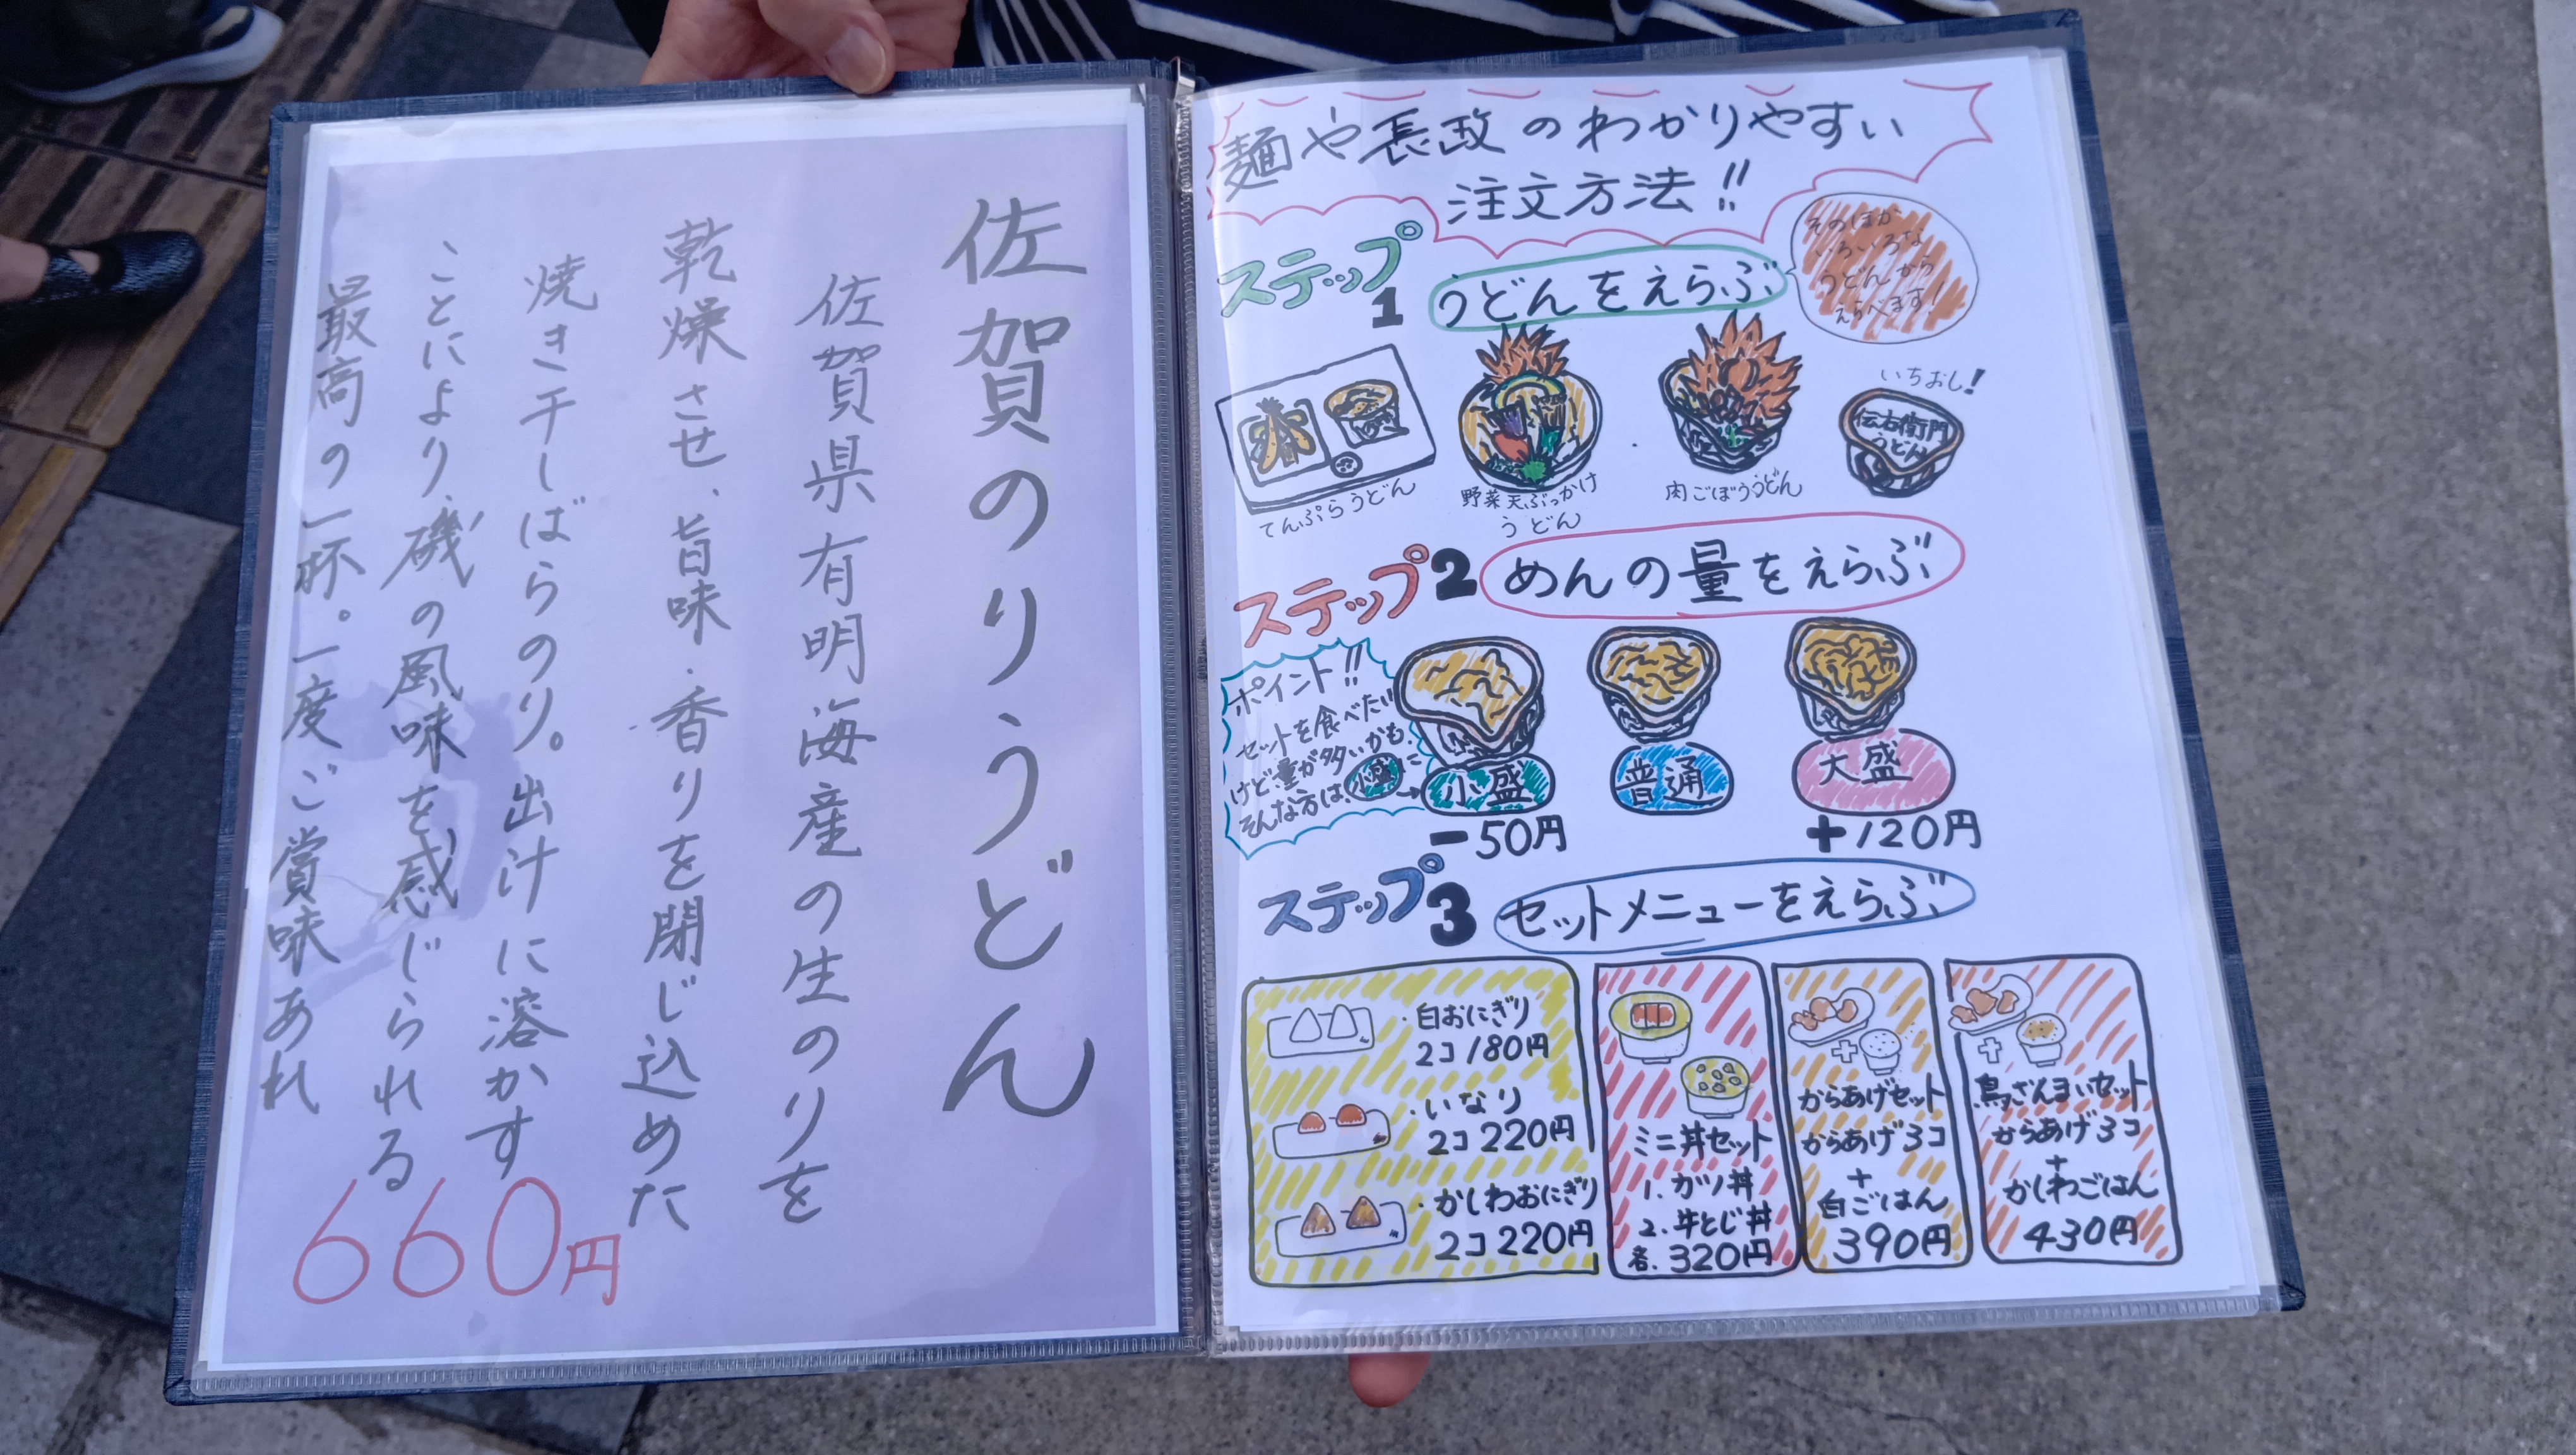 佐賀のりうどん
佐賀県有明海産の生のりを
乾燥させ、旨味・香りを閉じ込めた
焼き干しばらのり。出汁に溶かす
ことにより、磯の風味を感じられる
最高の一杯。一度ご賞味あれ
660円
麺や長政のわかりやすい
注文方法!!
ステップ1 うどんをえらぶ
そのほか
いろいろな
うどんから
えらべます!
いちおし!
伝右衛門
うどん
てんぷらうどん
野菜天ぶっかけ
うどん
肉ごぼううどん
ステップ2 めんの量をえらぶ
ポイント!!
セットを食べたい
けど量が多いかも、
そんな方は、小盛に→
小盛
-50円
普通
大盛
+120円
ステップ3 セットメニューをえらぶ
・白おにぎり
2コ180円
・いなり
2コ220円
・かしわおにぎり
2コ220円
ミニ丼セット
1. カツ丼
2. 牛とじ丼
各. 320円
+
からあげセット
からあげ3コ
+
白ごはん
390円
+
鳥ざんまいセット
からあげ3コ
+
かしわごはん
430円